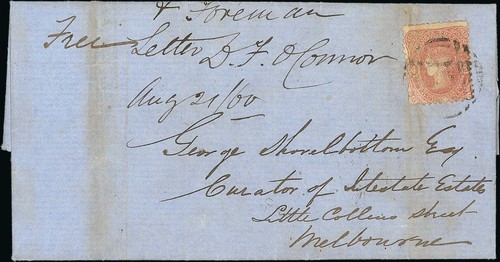 & Foreman
Free Letter D. F. O'Connor
Aug 21/60
George Shovelbottom Esq
Curator of Intestate Estates
Little Collins Street
Melbourne